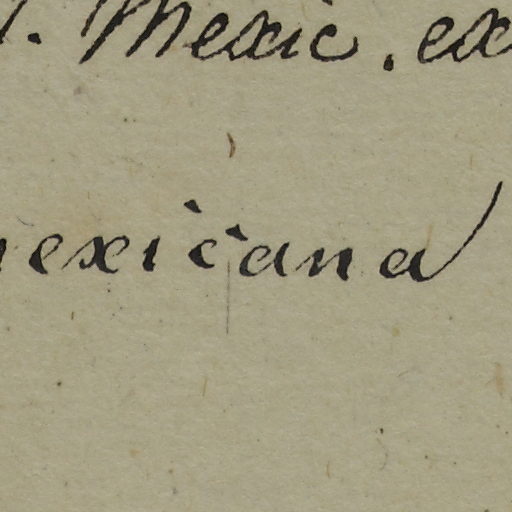 . Mexic. ex
mexicana